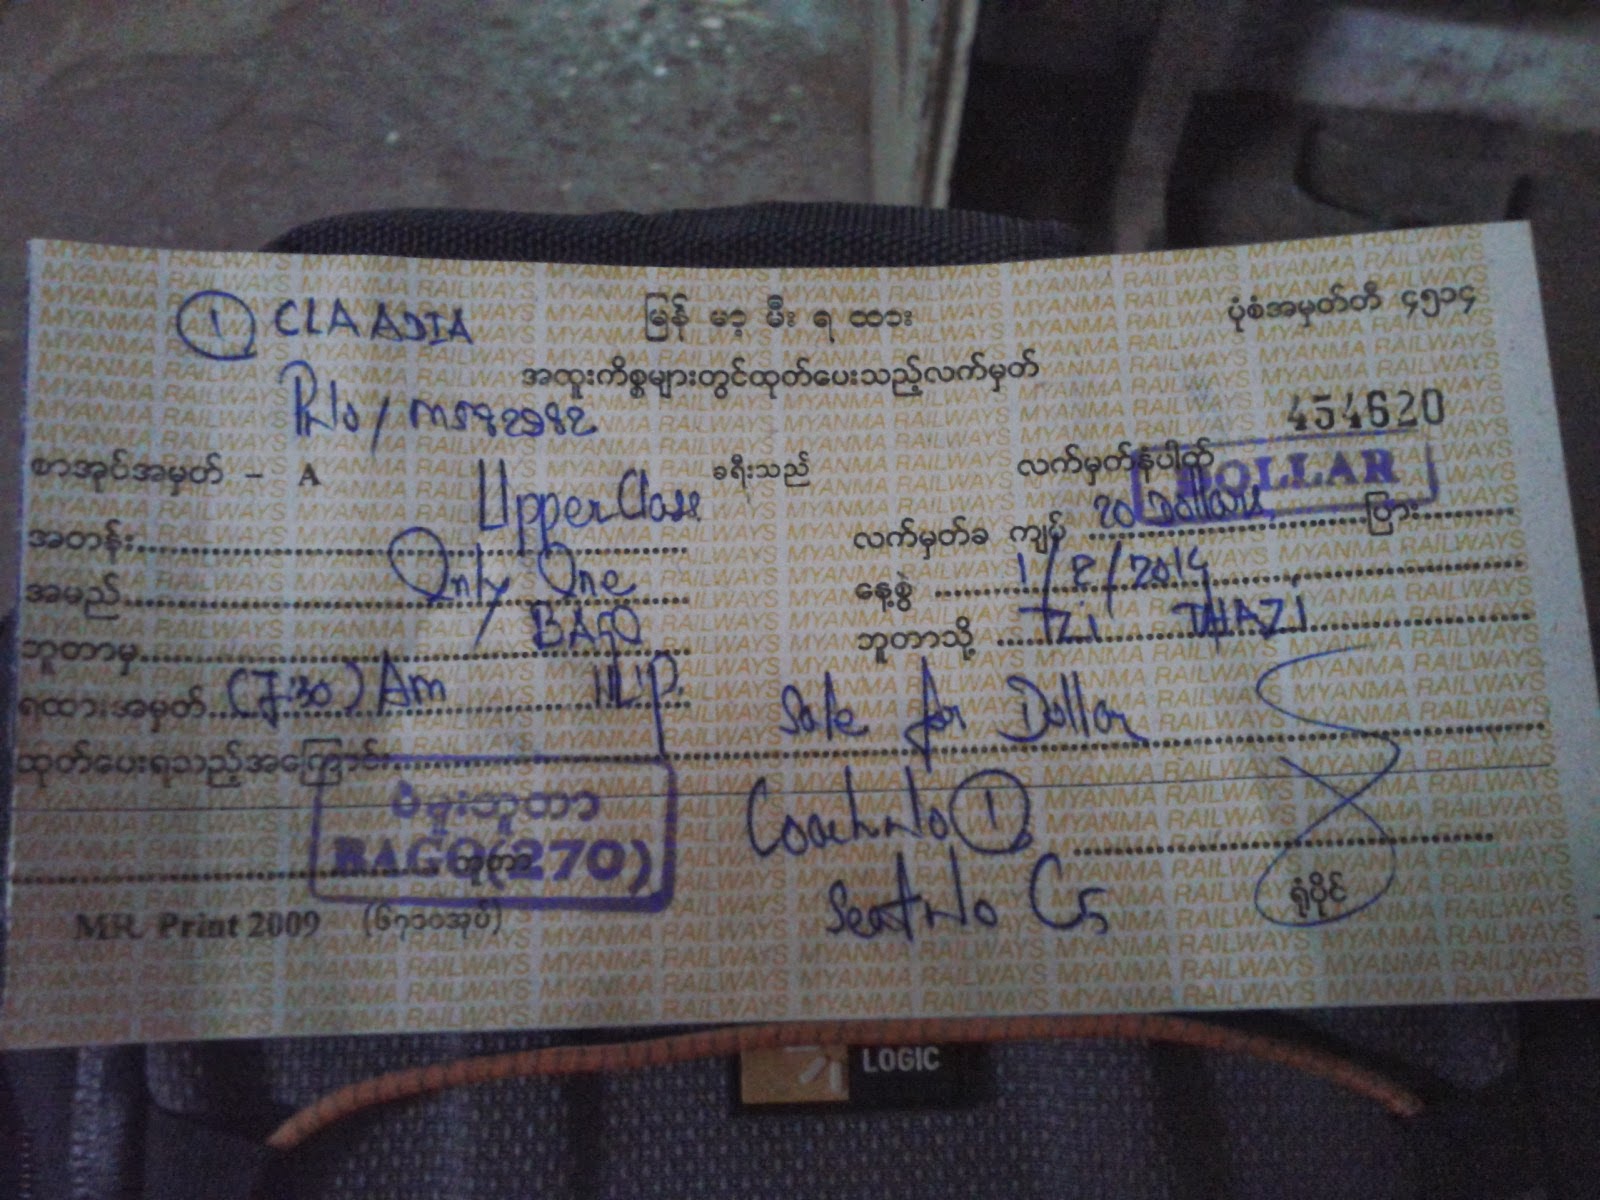 ① CLAADIA
မြန် မာ့ မီး ရ ထား
ပုံစံအမှတ်တီ ၄၅၁၄
အထူးကိစ္စများတွင်ထုတ်ပေးသည့်လက်မှတ်
P.No/ m582982
454620
စာအုပ်အမှတ် - A
ခရီးသည်
လက်မှတ်နံပါတ်
DOLLAR
အတန်း Upper Class
လက်မှတ်ခ ကျပ် 20 Dollars ပြား
အမည် Only One
နေ့စွဲ 1/2/2014
ဘူတာမှ BAGO
ဘူတာသို့ TZI THAZI
ရထားအမှတ် (7:30) Am 11UP.
Sale for Dollar
ထုတ်ပေးရသည့်အကြောင်း
ပဲခူးဘူတာ
BAGO(270)
ဘူတာ
Coach No ①
Seat No C5
ရုံပိုင်
MR. Print 2009 (၆၇၁၀အုပ်)
LOGIC